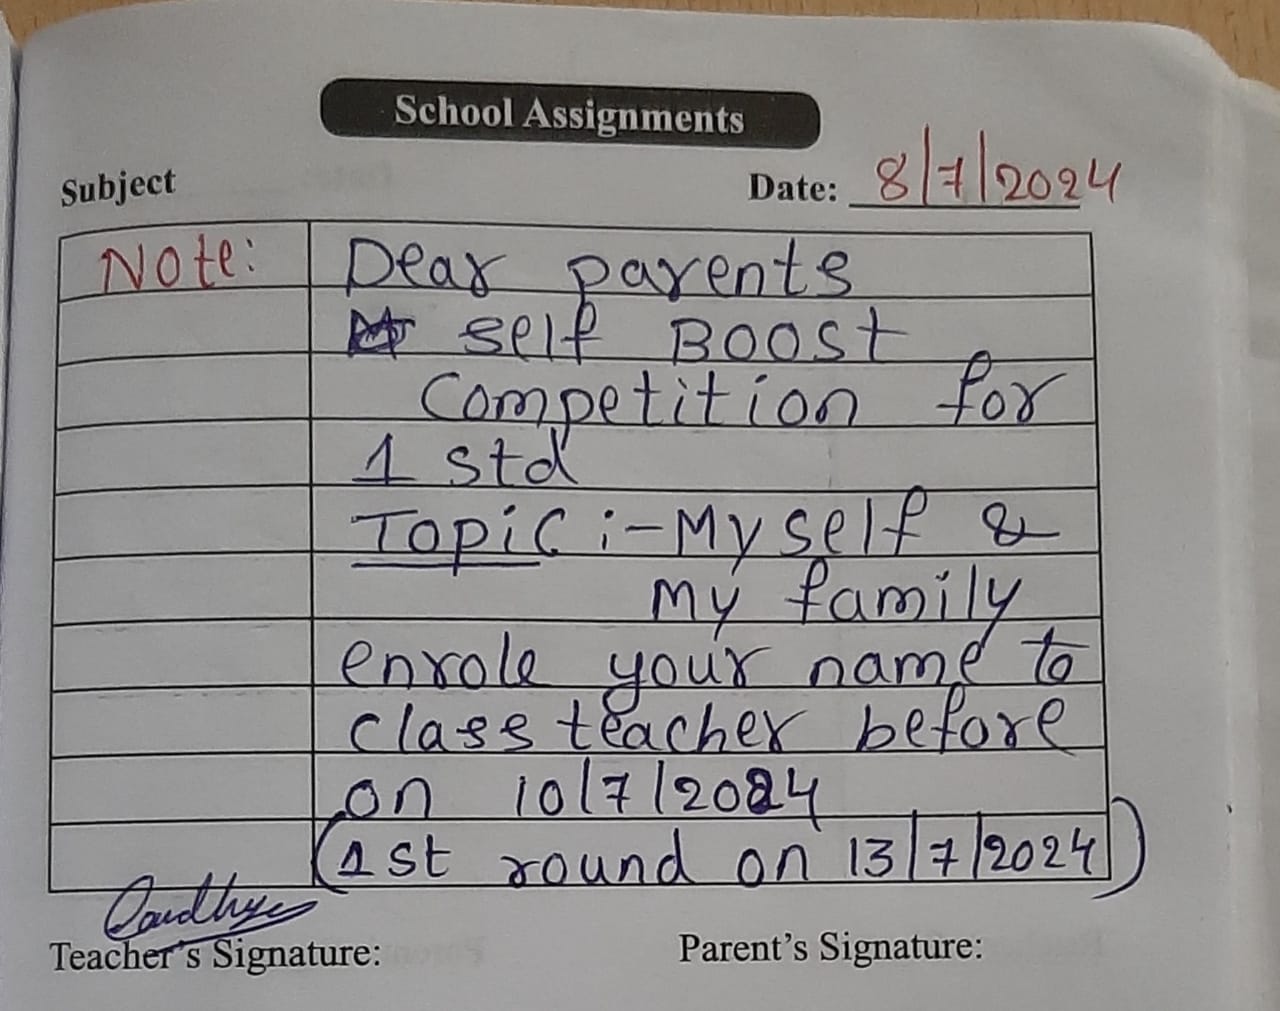 School Assignments
Subject
Date: 8/7/2024
Note: Dear parents
self Boost
Competition for
1 std
Topic :- Myself &
My family
enrole your name to
class teacher before
on 10/7/2024
(1st round on 13/7/2024)
Teacher's Signature:
Parent's Signature: